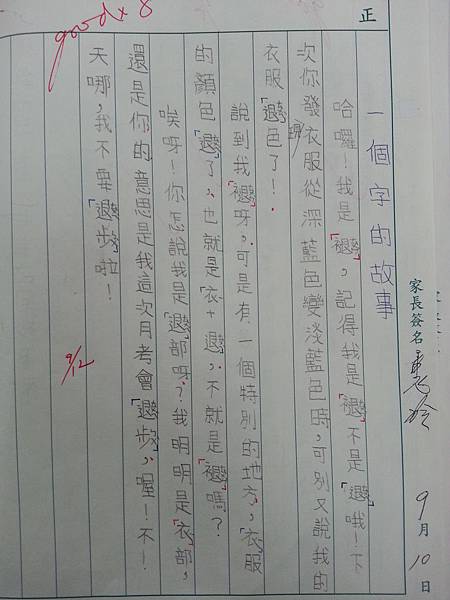 正
家長簽名
9月10日
一個字的故事
哈囉!我是「褪」,記得我是「褪」不是「退」哦!下
次你發現衣服從深藍色變淺藍色時,可別又說我的
衣服「退」色了!
說到我「褪」呀,可是有一個特別的地方,「衣服
的顏色「退」了,也就是「衣+退」,不就是「褪」嗎?
唉呀!你怎說我是「退」部呀?我明明是「衣」部,
還是你的意思是我這次月考會「退步」,喔!不!
天哪,我不要「退步」啦!
9/12
good x 8